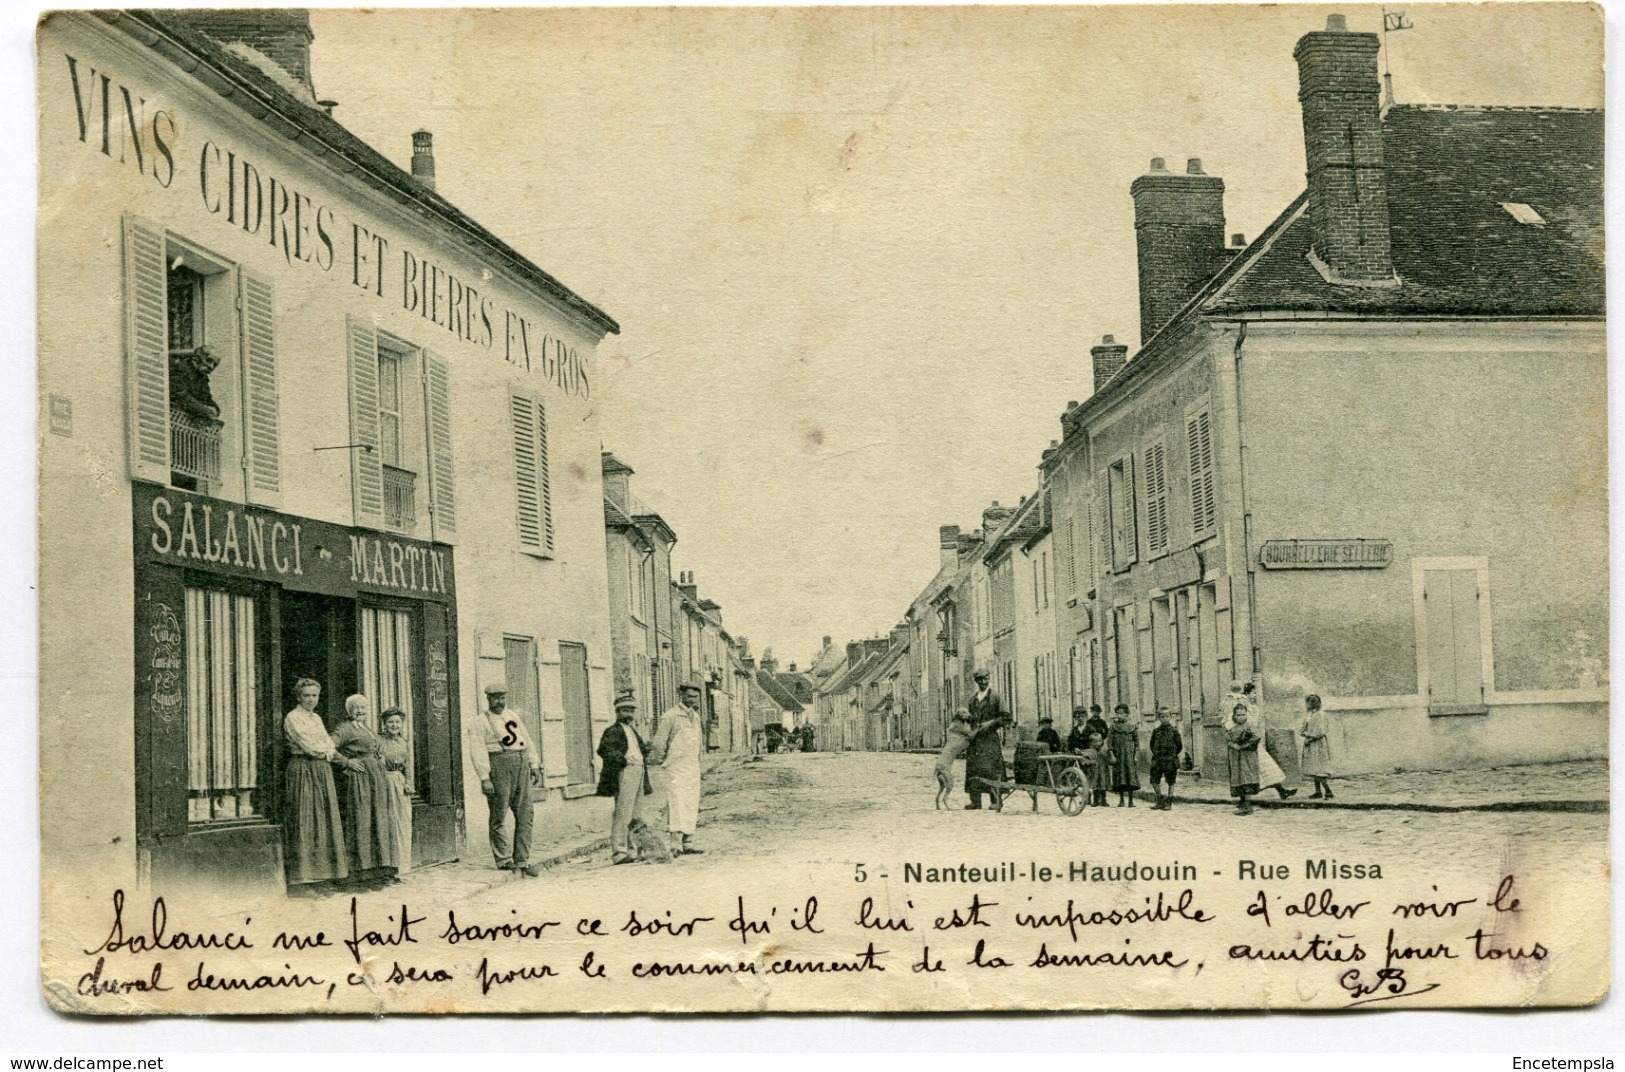 VINS CIDRES ET BIERES EN GROS
SALANCI - MARTIN
RUE MISSA
BOURRELLERIE SELLERIE
S.
5 - Nanteuil-le-Haudouin - Rue Missa
Salanci me fait savoir ce soir qu'il lui est impossible d'aller voir le
cheval demain, ce sera pour le commencement de la semaine, amitiés pour tous
GB
www.delcampe.net
Encetempsla